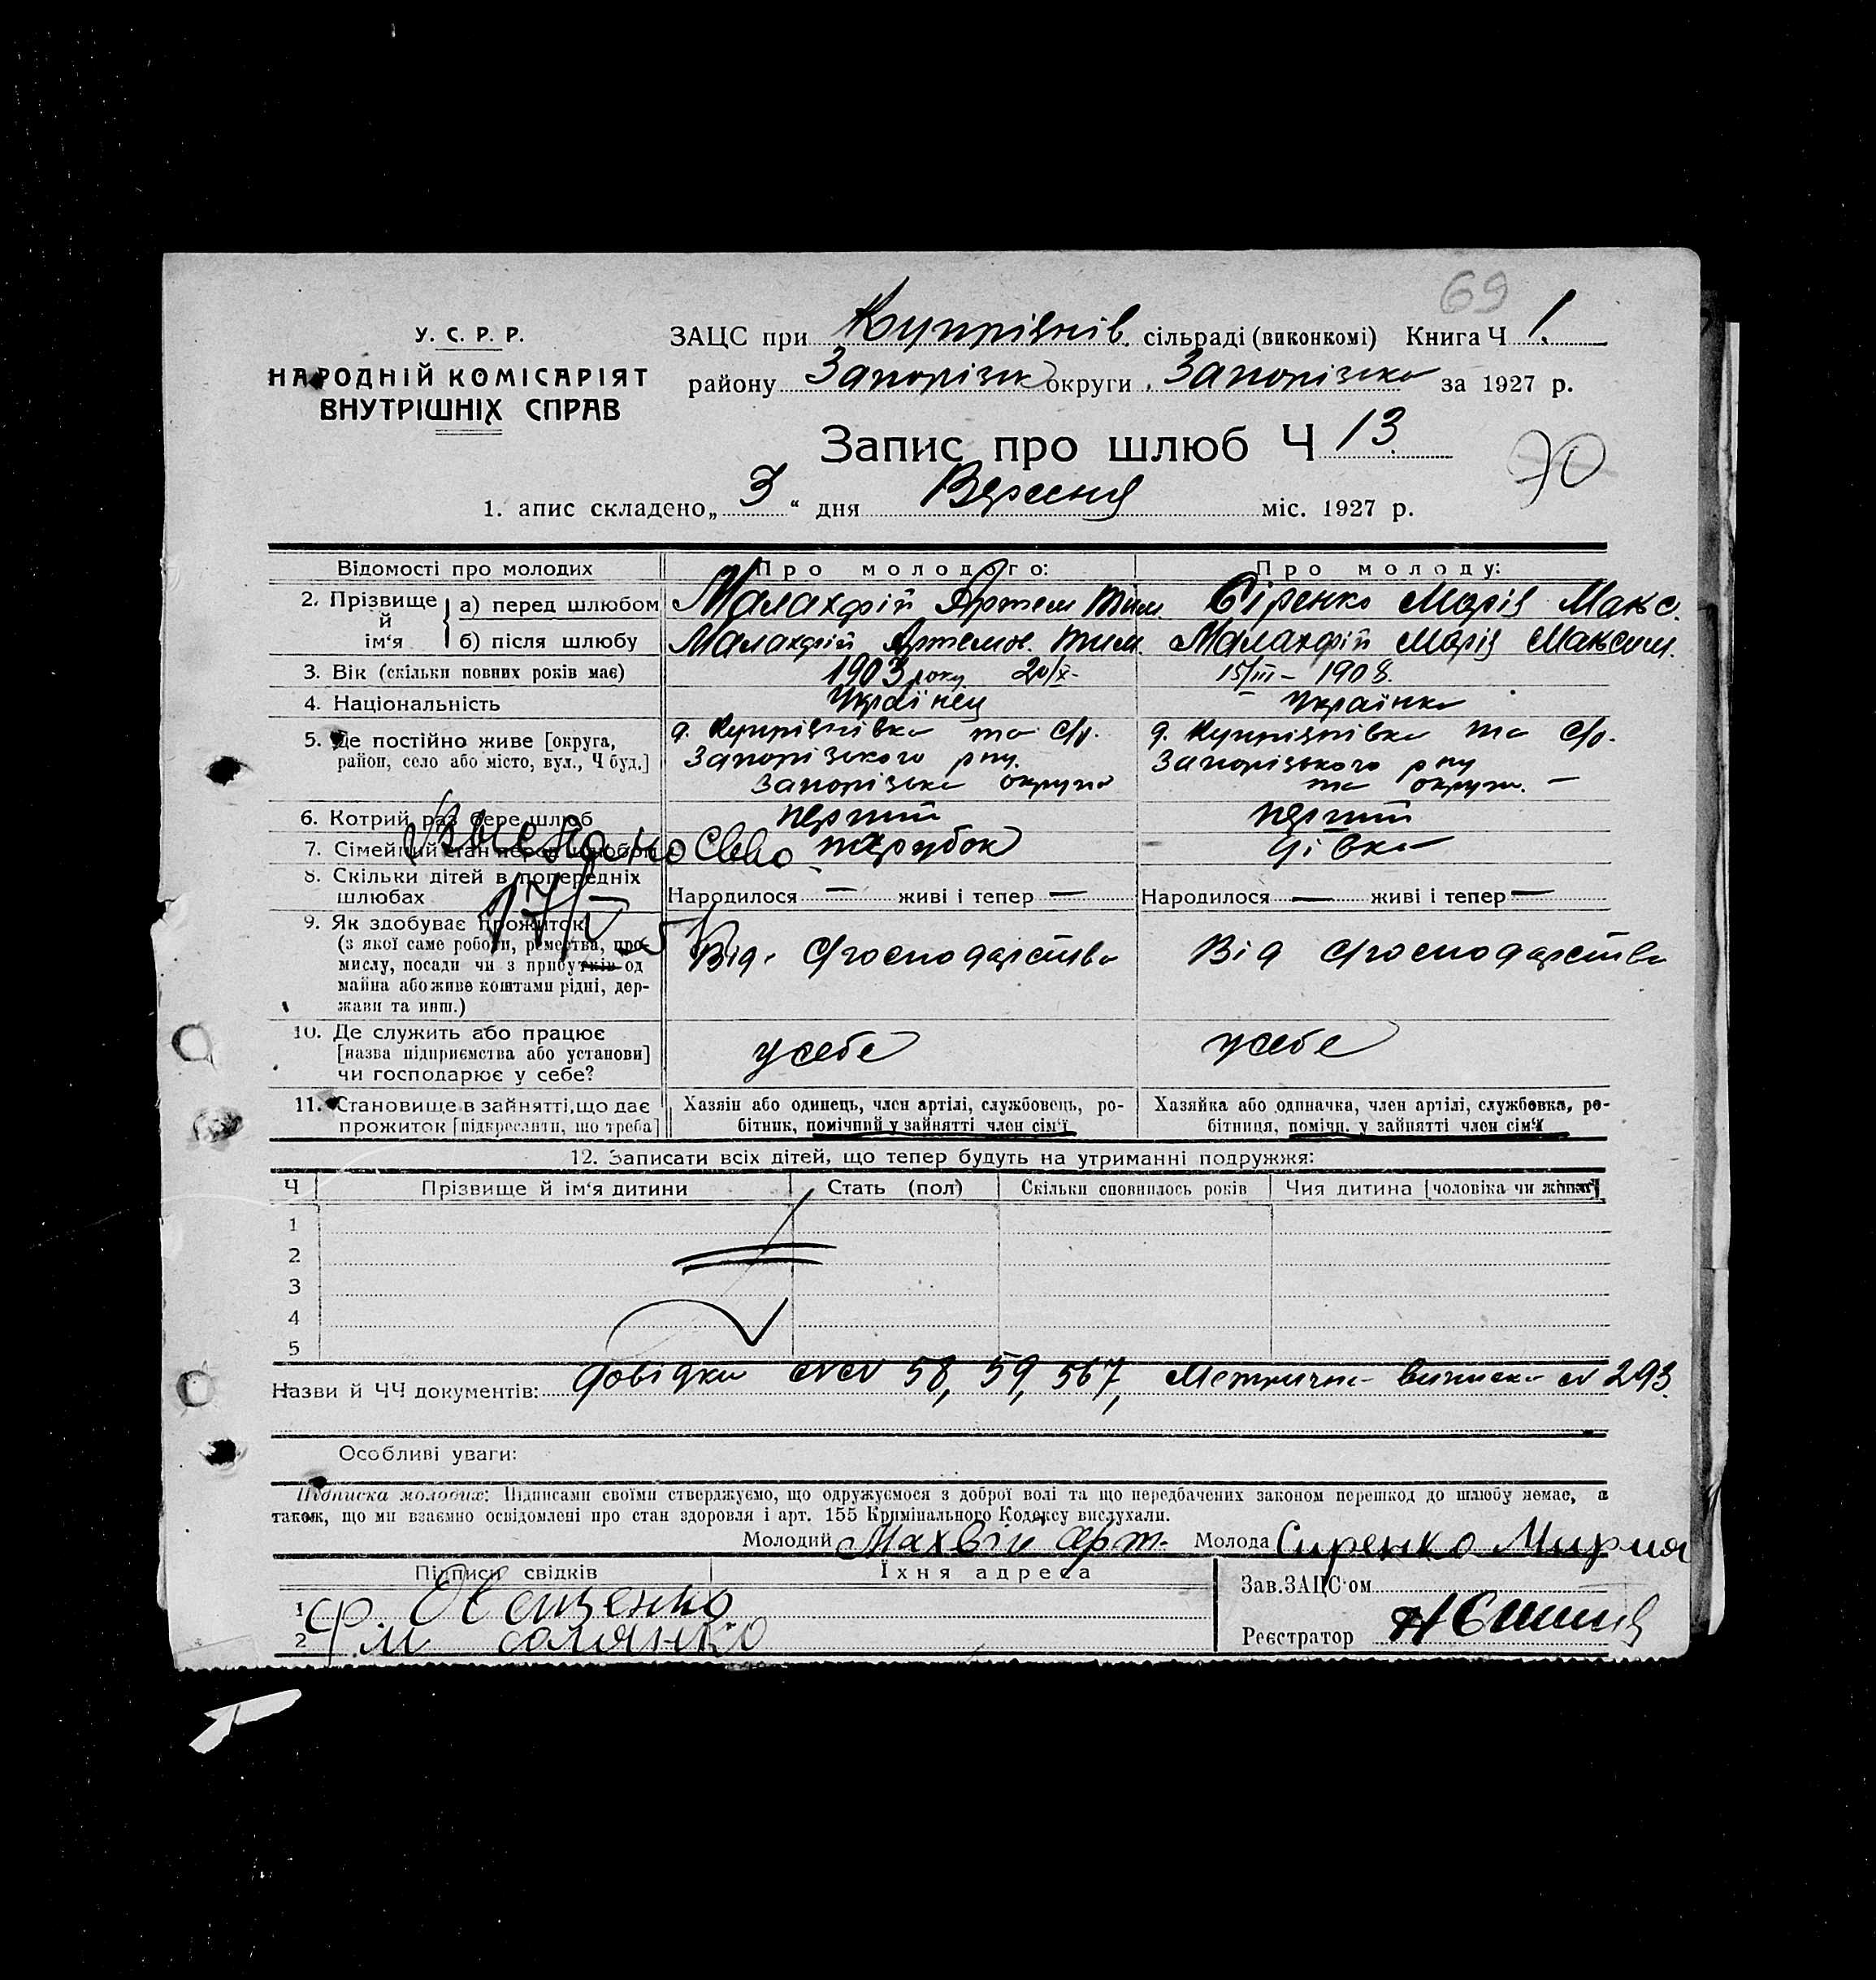 69
У. С. Р. Р.
НАРОДНІЙ КОМІСАРІЯТ
ВНУТРІШНІХ СПРАВ
ЗАЦС при Купріянів. сільраді (виконкомі) Книга Ч 1.
району Запорізьк округи Запорізька за 1927 р.
Запис про шлюб Ч 13
70
1. апис складено „ 3 “ дня Вересня міс. 1927 р.
Відомості про молодих Про молодого: Про молоду:
2. Прізвище й ім'я а) перед шлюбом Малахфій Артем Тим. Сіренко Марія Макс.
б) після шлюбу Малахфій Артемов. Тим. Малахфій Марія Максим.
3. Вік (скільки повних років має) 1903 року 20/ІХ- 15/ІІІ – 1908.
4. Національність Українець Українка
5. Де постійно живе [округа, район, село або місто, вул., Ч буд.] д. Купріянівка та с/р. д. Купріянівка та с/р.
Запорізького р-ну. Запорізького р-ну
Запорізька округа та округи. –
6. Котрий раз бере шлюб перший перший
7. Сімейний стан перед шлюбом парубок дівка
Выдано св-во
17/V
8. Скільки дітей в попередніх шлюбах Народилося — живі і тепер — Народилося — живі і тепер —
9. Як здобуває прожиток
(з якої саме роботи, ремества, промислу, посади чи з прибутків од майна або живе коштами рідні, держави та инш.) Від с/господарства Від с/господарства
10. Де служить або працює
[назва підприємства або установи]
чи господарює у себе? у себе у себе
11. Становище в зайнятті, що дає
прожиток [підкреслити, що треба] Хазяїн або одинець, член артілі, службовець, робітник, помічний у зайнятті член сім'ї Хазяйка або одиначка, член артілі, службовка, робітниця, помічн. у зайнятті член сім'ї
12. Записати всіх дітей, що тепер будуть на утриманні подружжя:
Ч Прізвище й ім'я дитини Стать (пол) Скільки сповнилось років Чия дитина [чоловіка чи жінки]
1
2
3
4
5
Назви й ЧЧ документів: Довідки №№ 58, 59, 567, Метрична виписка № 293.
Особливі уваги:
Підписка молодих: Підписами своїми стверджуємо, що одружуємося з доброї волі та що передбачених законом перешкод до шлюбу немає, а
також, що ми взаємно освідомлені про стан здоровля і арт. 155 Кримінального Кодексу вислухали.
Молодий Махвій Арт. Молода Сиренко Мария
Підписи свідків Їхня адреса
Зав. ЗАЦС'ом
1
2
Реєстратор